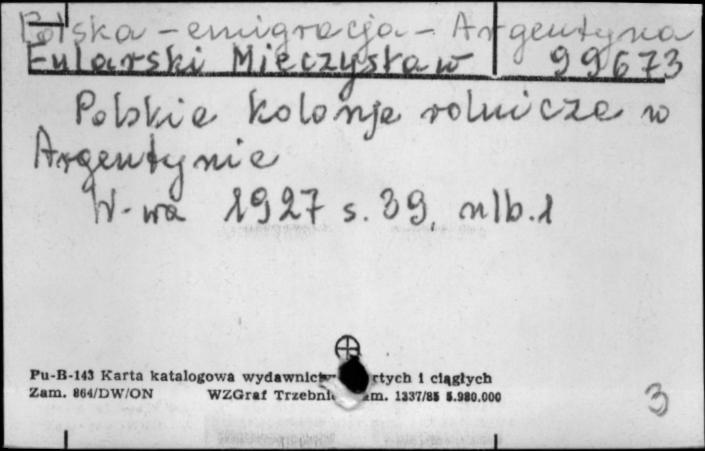 Polska - emigracja - Argentyna
Fularski Mieczysław 99673
Polskie kolonje rolnicze w
Argentynie
W-wa 1927 s. 39, nlb. 1
Pu-B-143 Karta katalogowa wydawnictw i ciągłych
Zam. 864/DW/ON WZGraf Trzebnica 1337/85 5.980.000
3